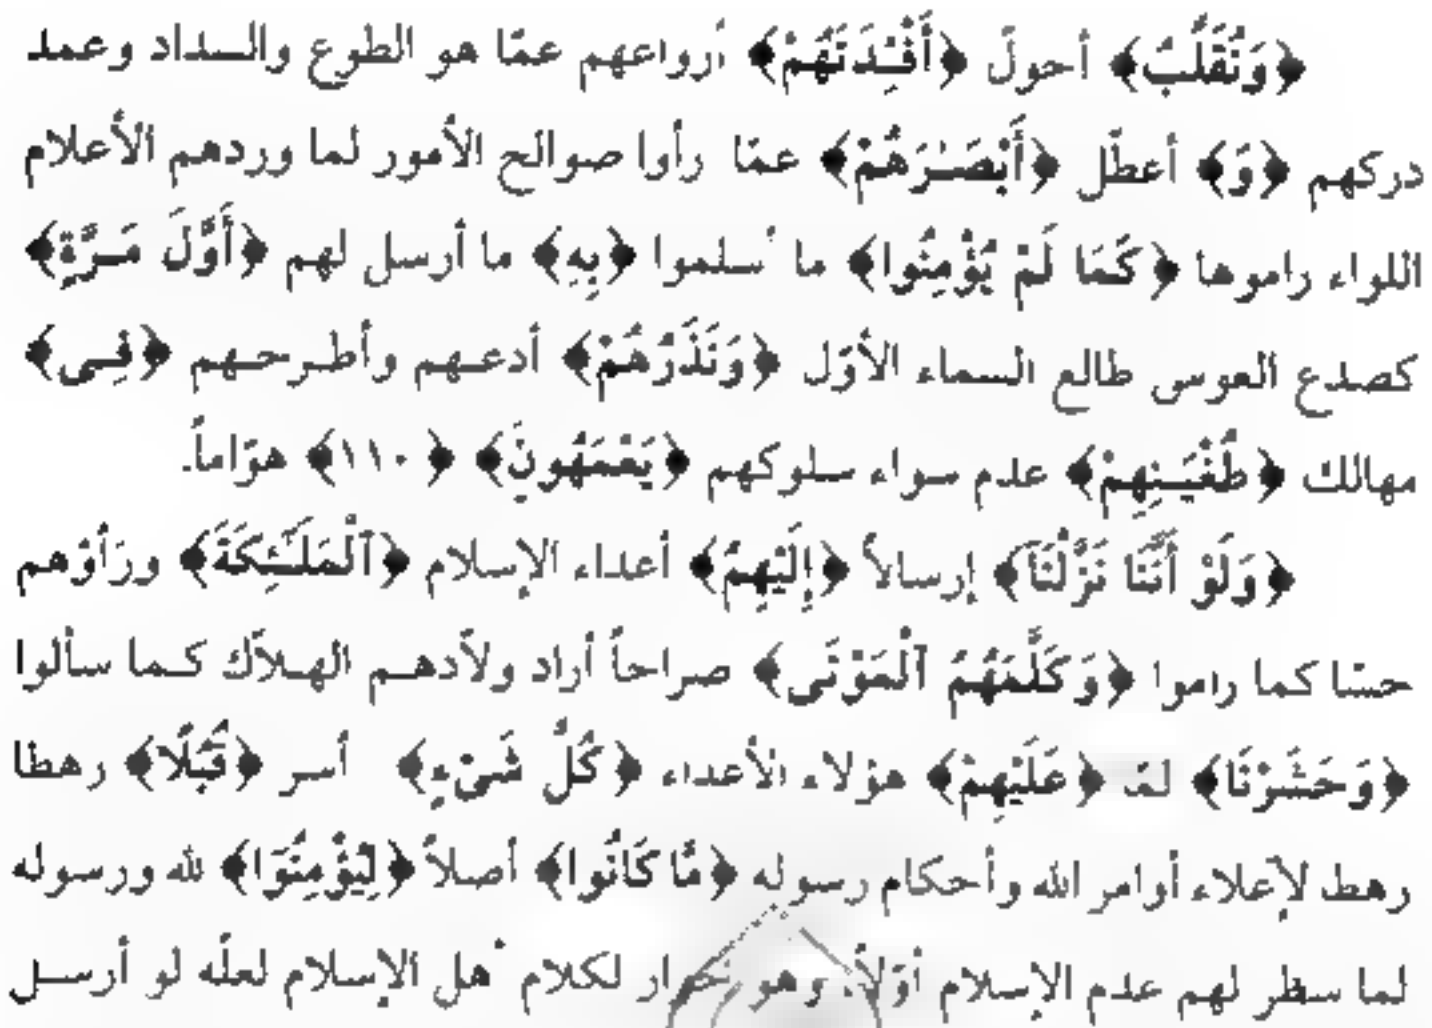 ﴿وَنُقَلِّبُ﴾ أحول ﴿أَفْـِٔدَتَهُمْ﴾ أرواعهم عمّا هو الطوع والسداد وعمد
دركهم ﴿وَ﴾ أعطّل ﴿أَبْصَـٰرَهُمْ﴾ عمّا رأوا صوالح الأمور لما وردهم الأعلام
اللواء راموها ﴿كَمَا لَمْ يُؤْمِنُوا﴾ ما أسلموا ﴿بِهِ﴾ ما أرسل لهم ﴿أَوَّلَ مَـرَّةٍ﴾
كصدع العوسى طالع السماء الأوّل ﴿وَنَذَرُهُمْ﴾ أدعـهم وأطـرحـهم ﴿فِـى﴾
مهالك ﴿طُغْيَـٰنِهِمْ﴾ عدم سواء سلوكهم ﴿يَعْمَهُونَ﴾ ﴿١١٠﴾ هوّاماً.
﴿وَلَوْ أَنَّنَا نَزَّلْنَآ﴾ إرسالاً ﴿إِلَيْهِمُ﴾ أعداء الإسلام ﴿ٱلْمَلَـٰٓئِكَةَ﴾ ورَأوْهم
حسّا كما راموا ﴿وَكَلَّمَهُمُ ٱلْمَوْتَى﴾ صراحاً أراد ولاّدهـم الهـلاّك كـما سألوا
﴿وَحَشَرْنَا﴾ لمّ ﴿عَلَيْهِمْ﴾ هؤلاء الأعداء ﴿كُلَّ شَىْءٍ﴾ أسر ﴿قُبُلًا﴾ رهطا
رهط لإعلاء أوامر الله وأحكام رسوله ﴿مَّا كَانُوا﴾ أصلاً ﴿لِيُؤْمِنُوَا﴾ لله ورسوله
لما سطر لهم عدم الإسلام أوّلاً، وهو لكلام أهل الإسلام لعلّه لو أرسـل